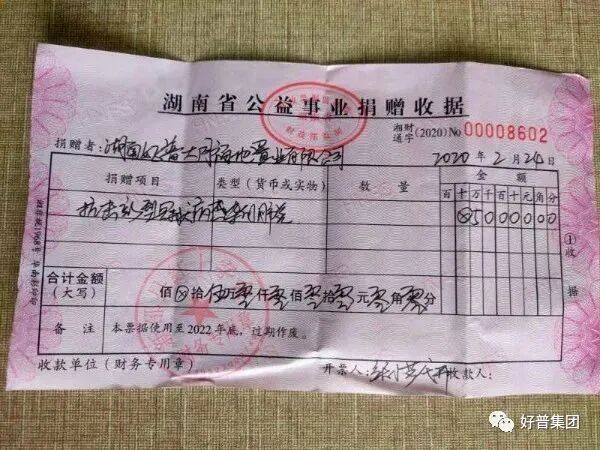 湖南省公益事业捐赠收据
湘财通字(2020) No 00008602
捐赠者: 湖南好普大同福地置业有限公司 2020年2月24日
捐赠项目 类型(货币或实物) 数量 金额
百十万千百十元角分
抗击新型冠状病毒 ⊗5000000
合计金额(大写) 佰⊗拾伍万零仟零佰零拾零元零角零分
备注 本票据使用至2022年底,过期作废。
收款单位(财务专用章) 开票人: 收款人:
①收据
好普集团